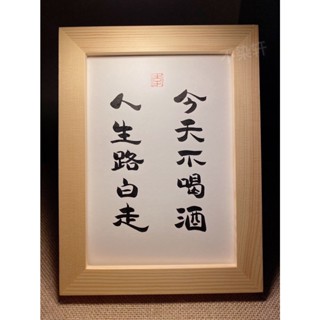 今天不喝酒
人生路白走